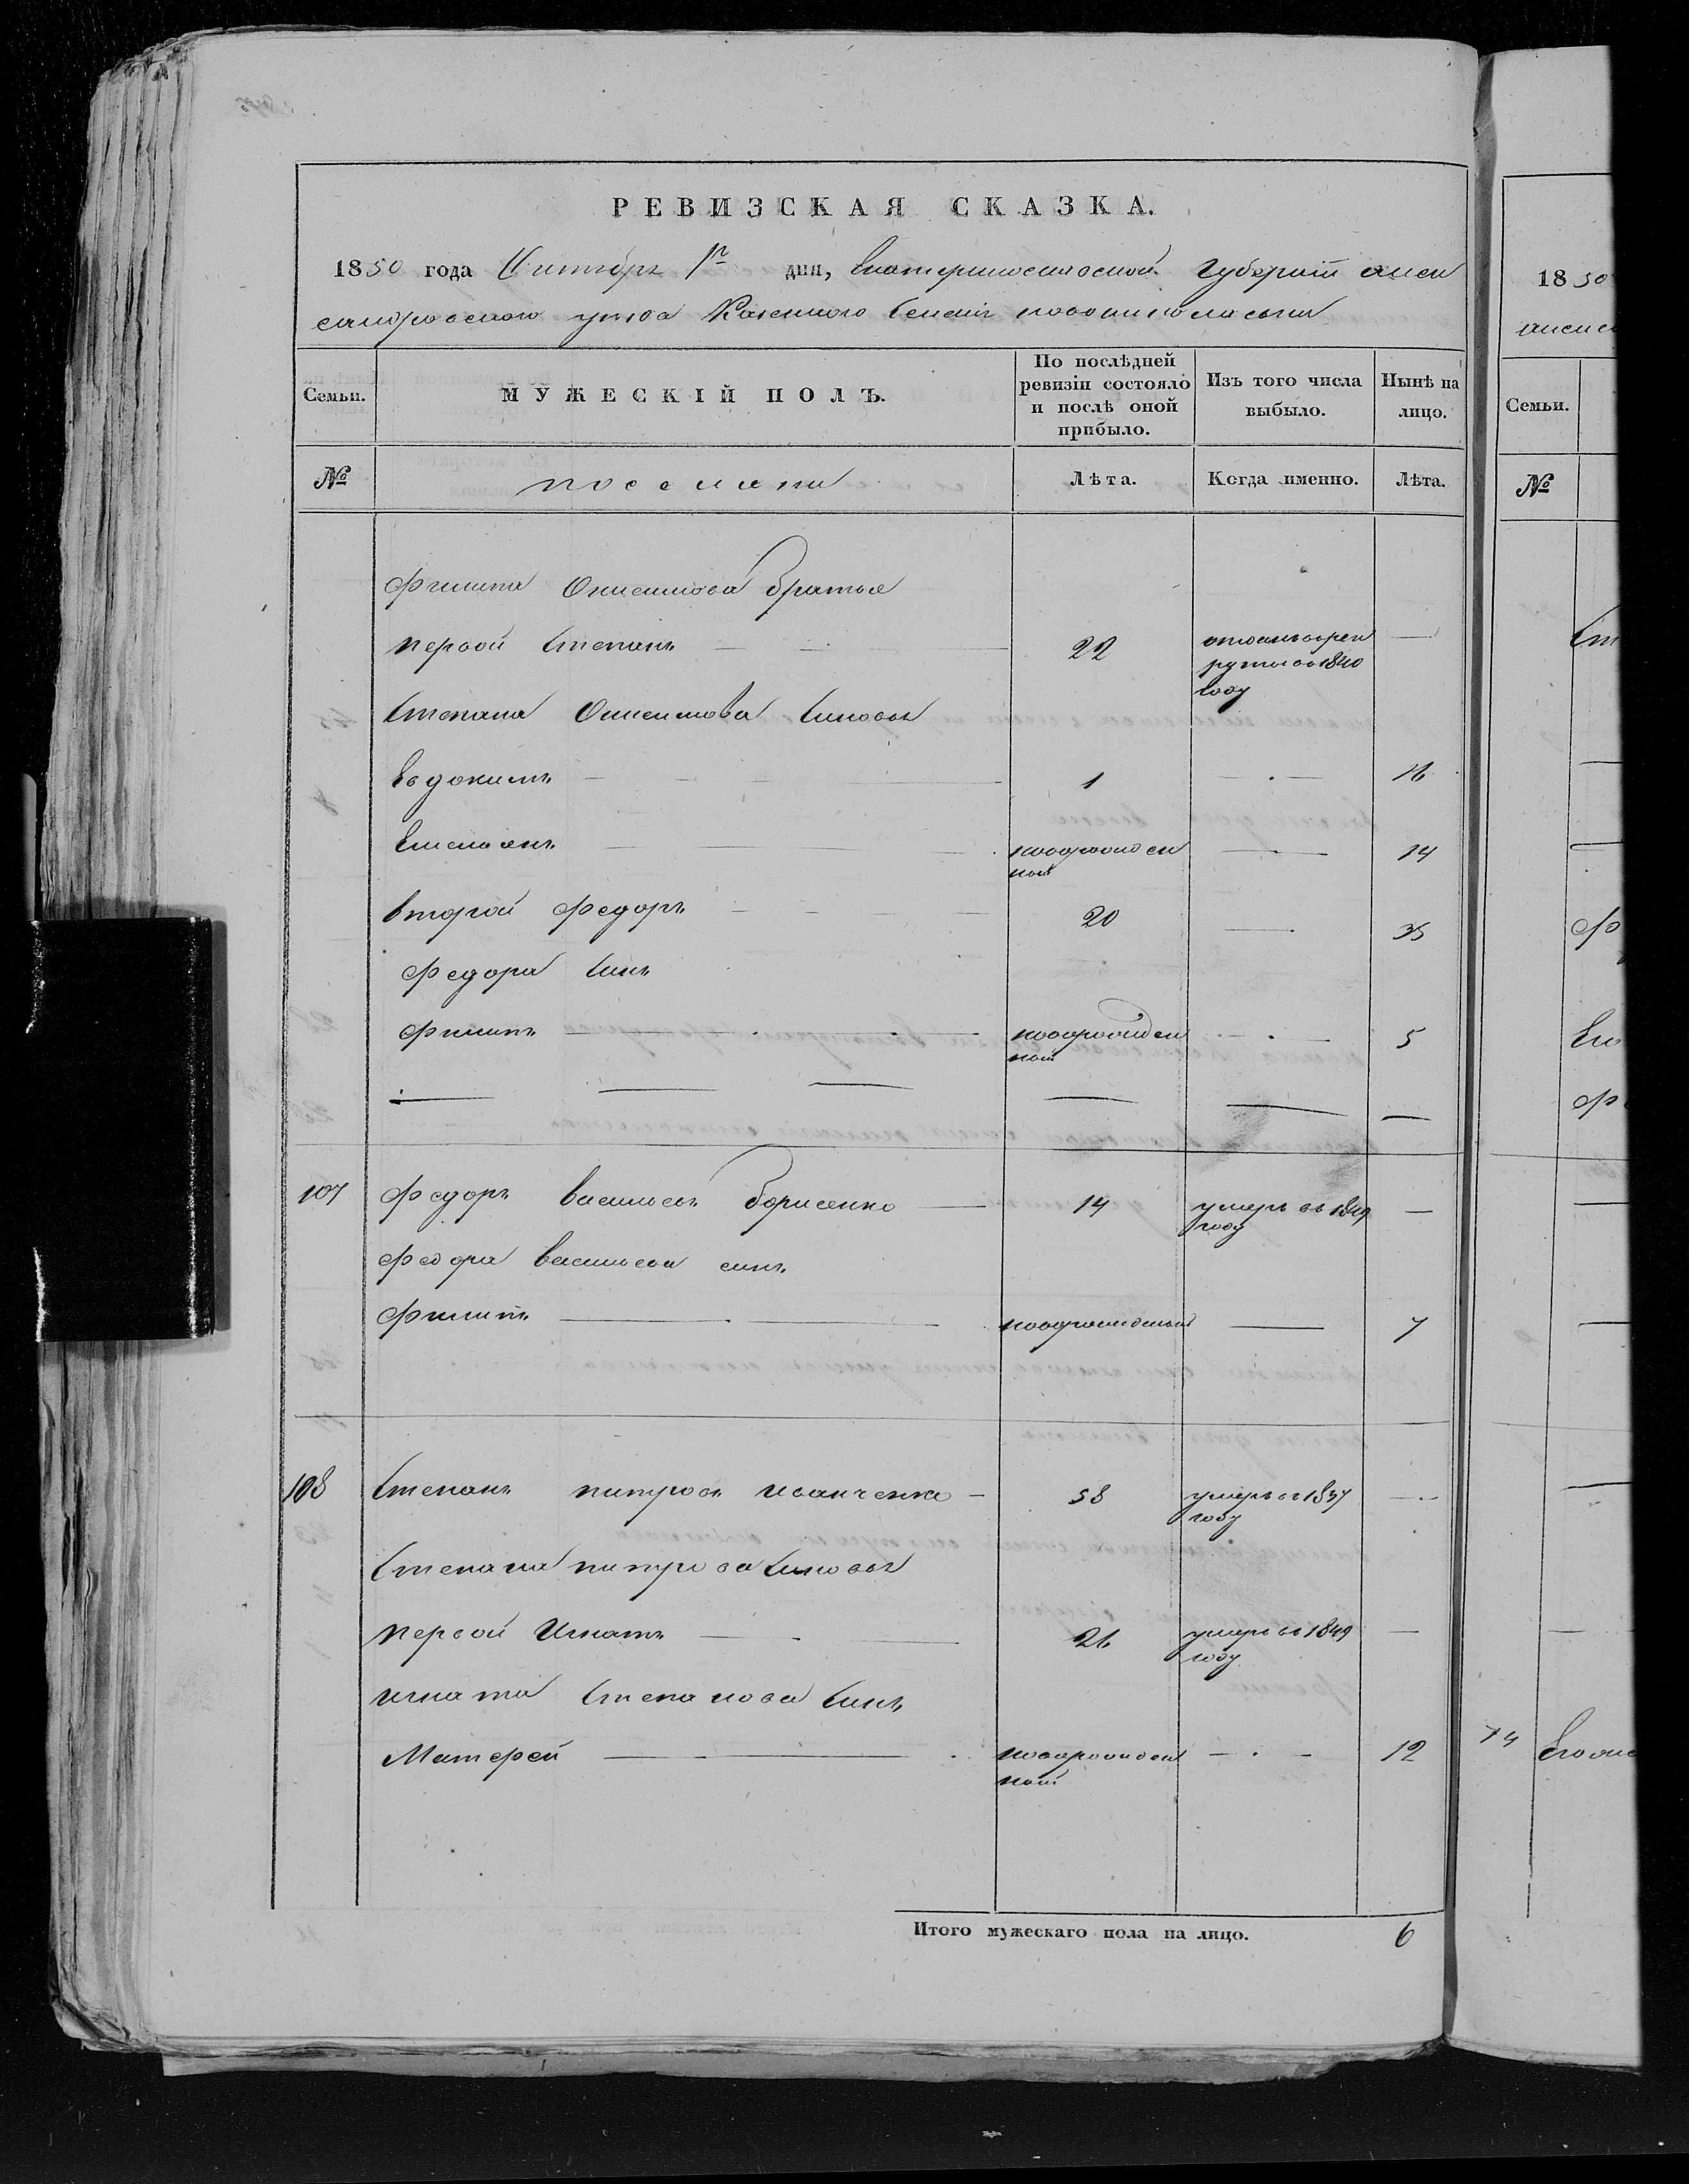 РЕВИЗСКАЯ СКАЗКА.
1850 года Октября 1го дня, Екатеринославской Губернии Алек
сандровского уезда Казенного Селения
Семьи. МУЖЕСКІЙ ПОЛЪ. По послѣдней ревизіи состояло и послѣ оной прибыло. Изъ того числа выбыло. Нынѣ на лицо.
№ поселяни Лѣта. Когда именно. Лѣта.
Филипа Онисимова братья
первой Степанъ 22 вь 1840 году —
Степана Онисимова Синовья
Евдокимъ 1 — 16
Емельянъ новорожден ной — 14
второй Федоръ 20 — 35
Федора Синъ
Филипъ новорожден ной — 5
107 Федоръ Васильевъ Борисенко 14 умеръ въ 1849 году —
Федора Васильева синъ
Филипъ новорожденый — 7
108 Степанъ питровъ Иванченко 58 умеръ въ 1837 году —
Степана питрова Синовья
первой Игнатъ 26 умеръ въ 1849 году —
игната Степанова Синъ
Матфей новорожден ной — 12
Итого мужескаго пола на лицо. 6
1850
Семьи.
№
74